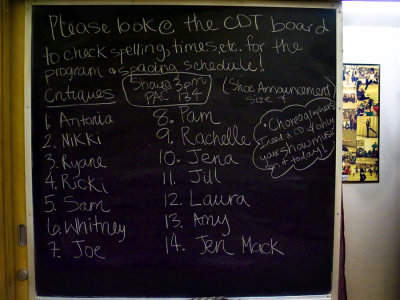 Please look @ the CDT board
to check spelling, times, etc. for the
program & spacing schedule!
Critiques
Showa 3pm
PAC 134
(Shoe Announcement
size ?
1. Antonia
2. Nikki
3. Ryane
4. Ricki
5. Sam
6. Whitney
7. Joe
8. Pam
9. Rachelle
10. Jena
11. Jul
12. Laura
13. Amy
14. Jen Mack
• Choreographers
I need a CD of only
your show music
it today!!